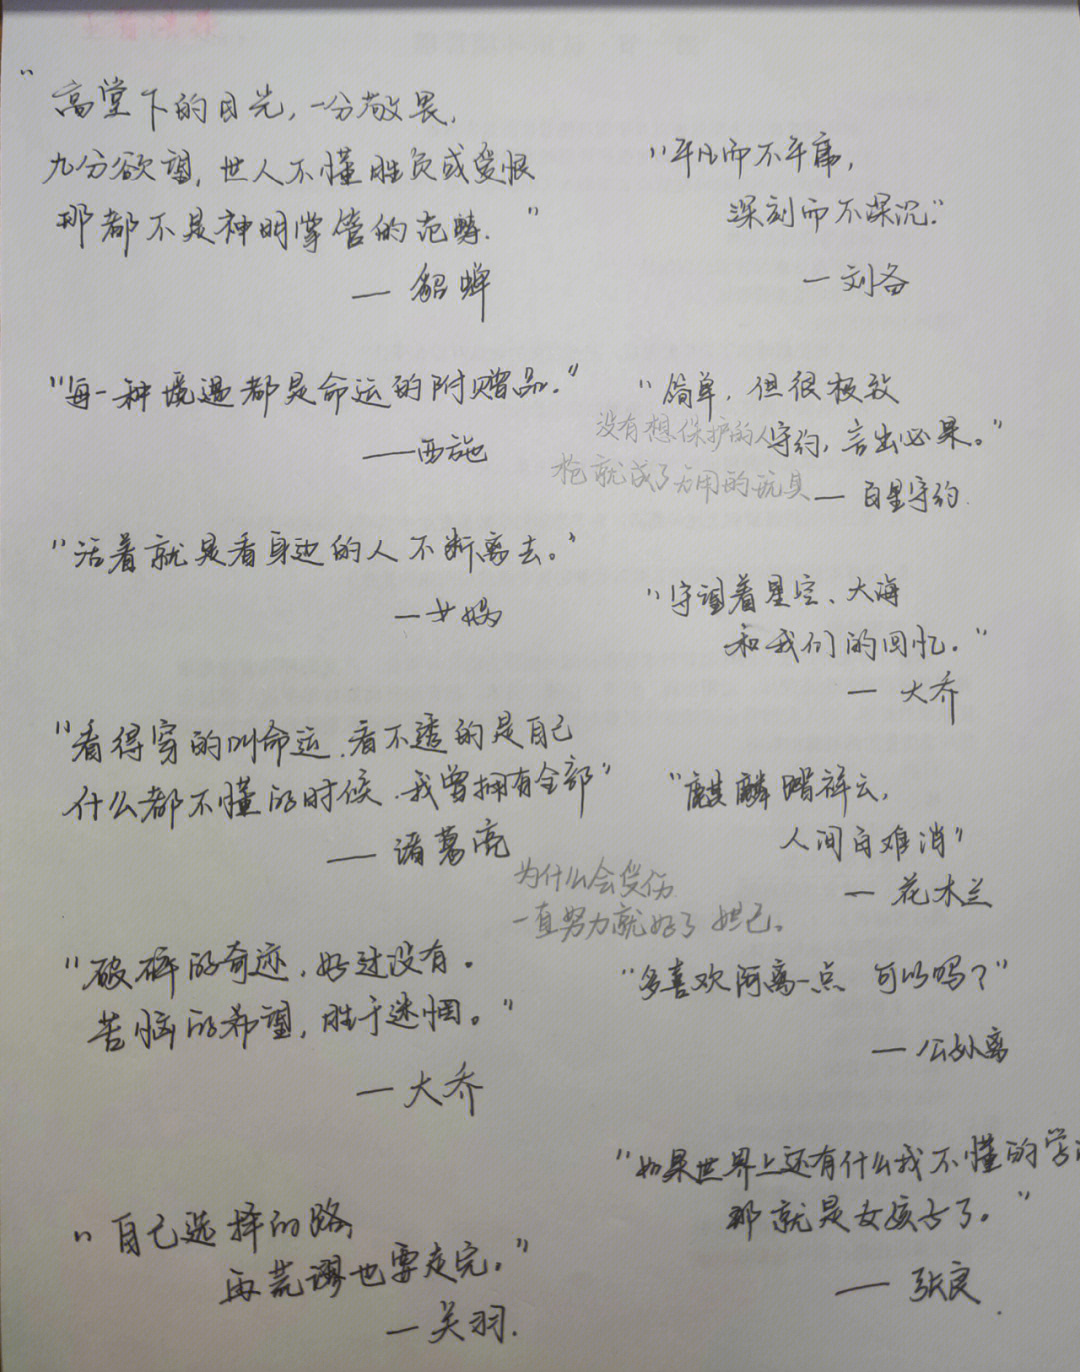 "高堂下的目光，一分敬畏，
九分欲望，世人不懂胜负或爱恨
那都不是神明掌管的范畴."
— 貂蝉
"每一种境遇都是命运的附赠品."
——西施
"活着就是看身边的人不断离去。"
—女娲
"看得穿的叫命运.看不透的是自己
什么都不懂的时候.我曾拥有全部"
— 诸葛亮
"破碎的奇迹.好过没有.
苦恼的希望,胜于迷惘。"
—大乔
"自己选择的路,
再荒谬也要走完。"
—关羽.
"平凡而不平庸,
深刻而不深沉."
—刘备
"简单.但很极致
守约,言出必果。"
没有想保护的人
枪就成了无用的玩具
—百里守约.
"守望着星空、大海
和我们的回忆."
— 大乔
"麒麟踏祥云,
人间自难消"
— 花木兰
为什么会受伤
一直努力就好了 妲己。
"多喜欢阿离一点 可以吗?"
—公孙离
"如果世界上还有什么我不懂的学
那就是女孩子了。"
— 张良.